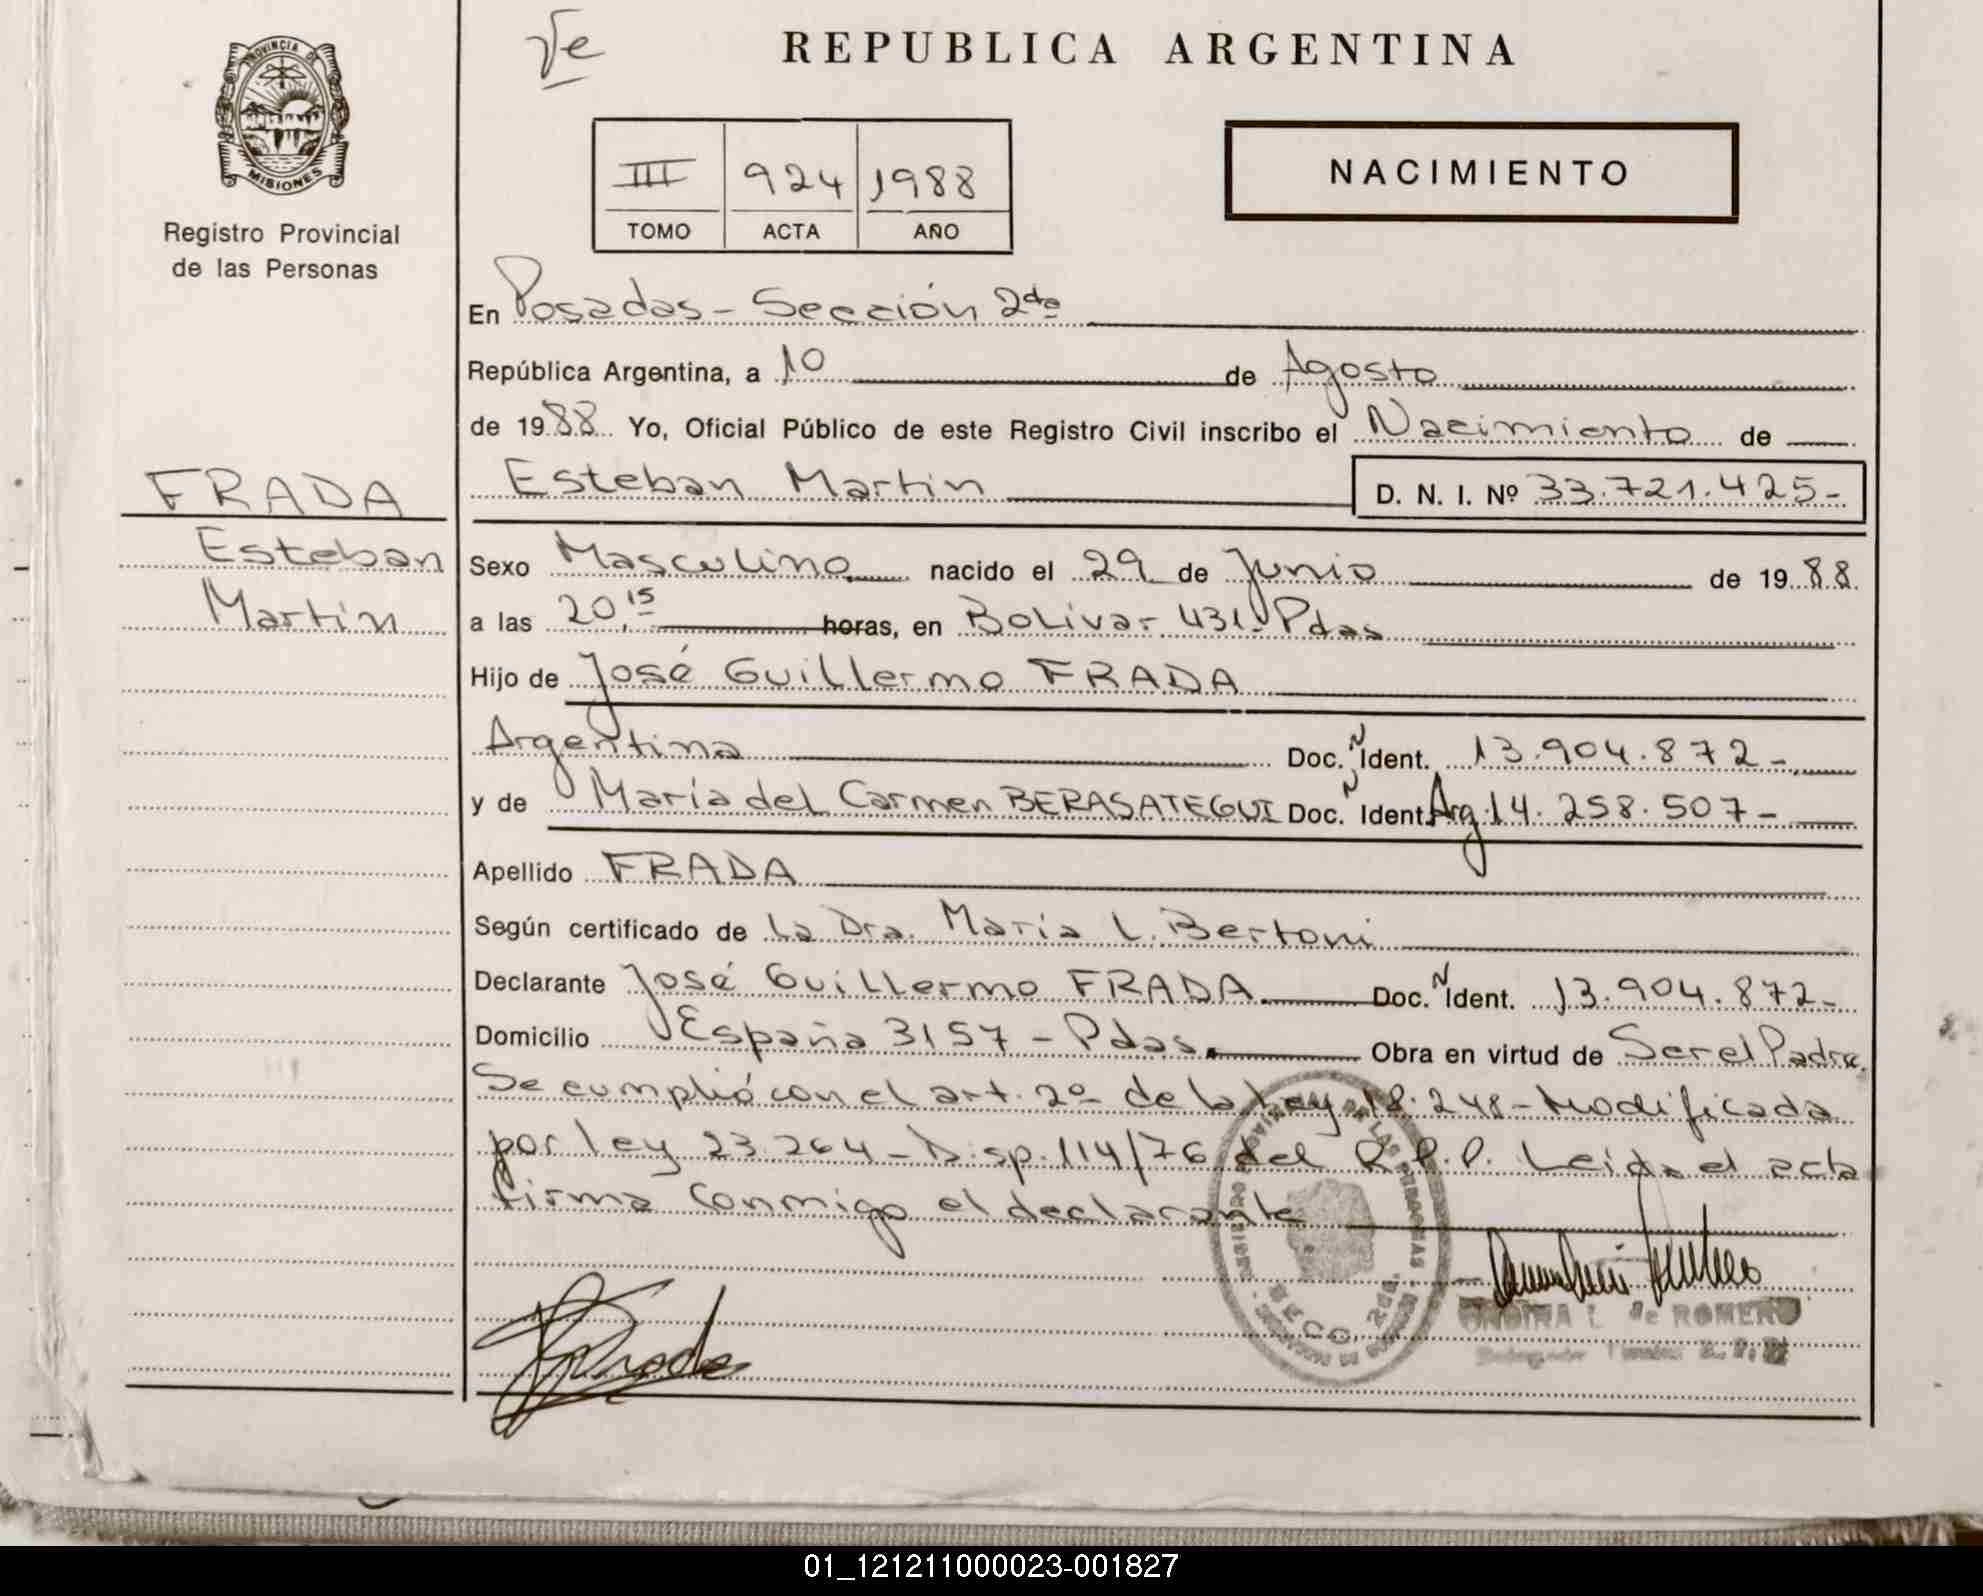 √e
REPUBLICA ARGENTINA
PROVINCIA DE
MISIONES
Registro Provincial
de las Personas
III 924 1988
TOMO ACTA AÑO
NACIMIENTO
En Posadas - Sección 2da
República Argentina, a 10 de Agosto
de 1988 Yo, Oficial Público de este Registro Civil inscribo el Nacimiento de
Esteban Martin D. N. I. Nº 33.721.425-
FRADA
Esteban
Martín
Sexo Masculino nacido el 29 de Junio de 1988
a las 20,15 horas, en Bolívar 431 - Pdas
Hijo de José Guillermo FRADA
Argentina Doc. N Ident. 13.904.872-
y de María del Carmen BERASATEGUI Doc. N Ident. Arg. 14.258.507-
Apellido FRADA
Según certificado de La Dra. María L. Bertoni
Declarante José Guillermo FRADA Doc. N Ident. 13.904.872-
Domicilio España 3157 - Pdas. Obra en virtud de Ser el Padre
Se cumplió con el art. 2º de la Ley 18.248 - Modificada
por ley 23.264 - Disp. 114/76 del R.P.P. Leida el acta
firma conmigo el declarante
SECC. 2da.
de ROMERO
01_121211000023-001827